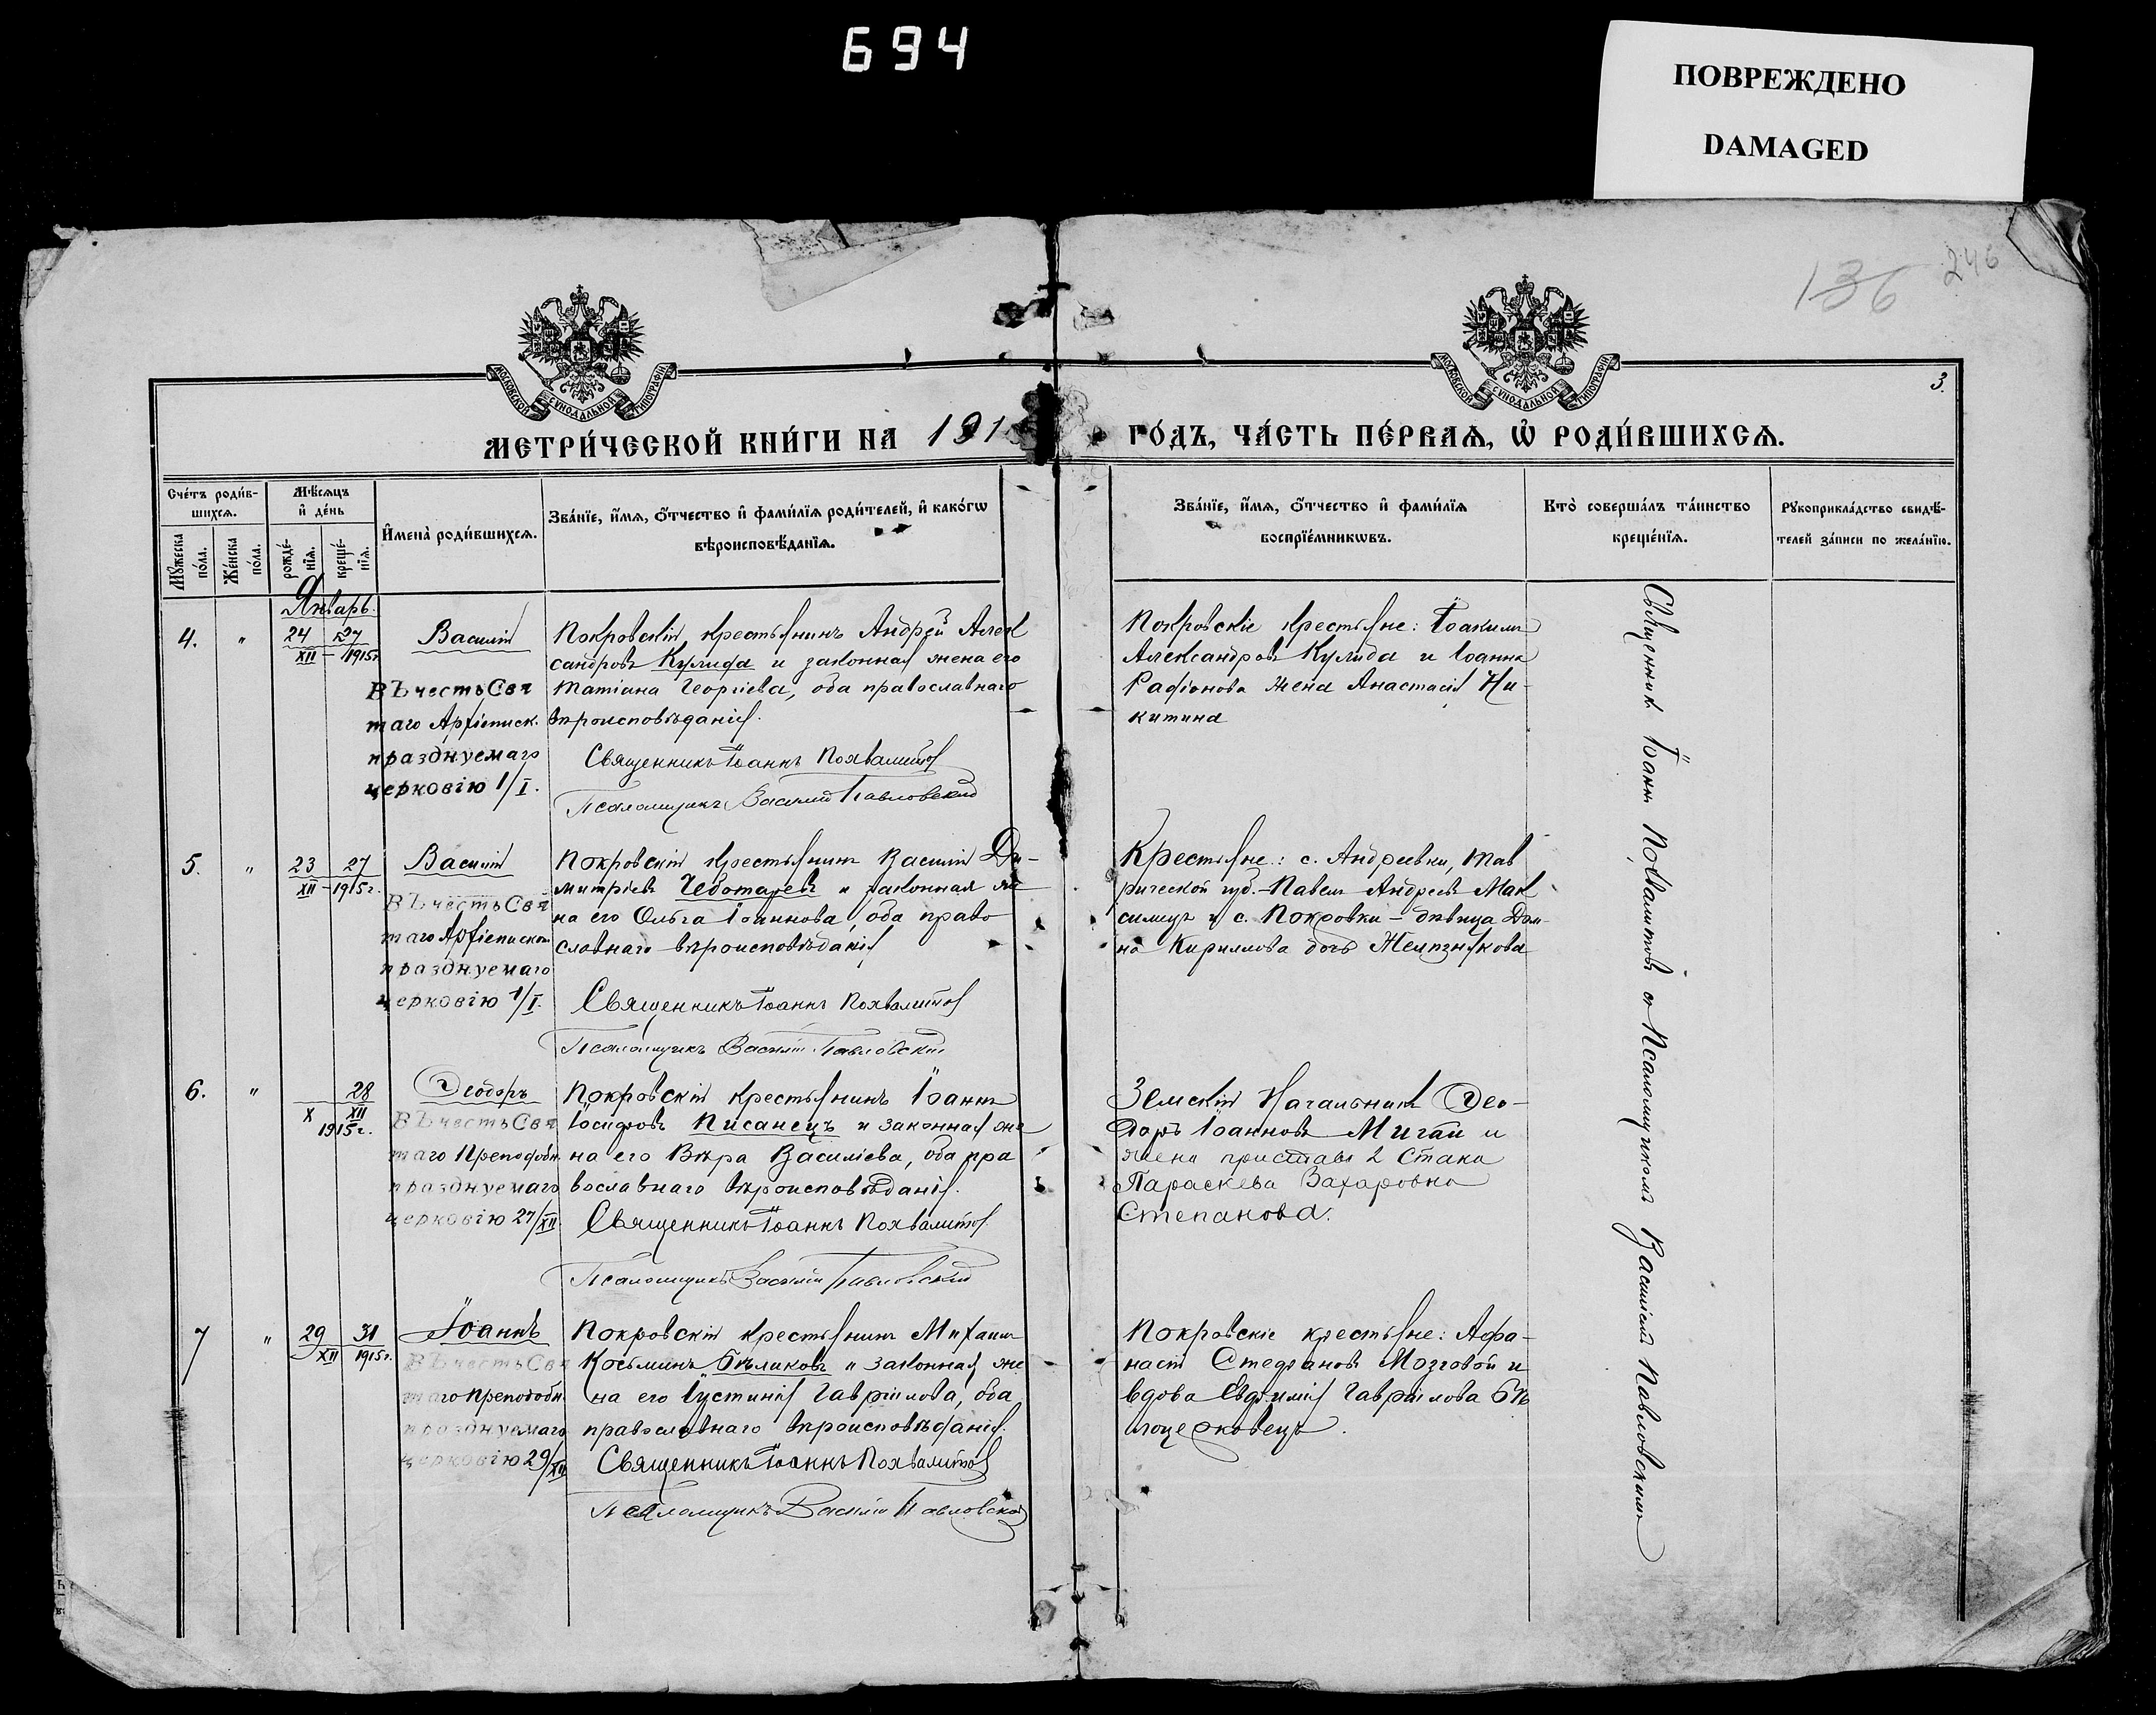 694
ПОВРЕЖДЕНО
DAMAGED
136
246
3.
МОСКОВСКОЙ СѴНОДАЛЬНОЙ ТИПОГРАФІИ
МОСКОВСКОЙ СѴНОДАЛЬНОЙ ТИПОГРАФІИ
МЕТРИ́ЧЕСКОЙ КНИ́ГИ НА 191
ГО́ДЪ, ЧА́СТЬ ПЕ́РВАѦ, Ѡ҆ РОДИ́ВШИХСѦ.
Сче́тъ роди́в-
шихсѧ.
Мꙋ́жеска по́ла.
Же́нска по́ла.
Мѣ́сѧцъ
и҆ де́нь
рожде́-
нїѧ.
креще́-
нїѧ.
И҆мена̀ роди́вшихсѧ.
Зва́нїе, и҆́мѧ, ѻ҆́тчество и҆ фами́лїѧ роди́телей, и҆ како́гѡ
вѣроисповѣ́данїѧ.
Зва́нїе, и҆́мѧ, ѻ҆́тчество и҆ фами́лїѧ
воспрїе́мникѡвъ.
Кто̀ соверша́лъ та́инство
креще́нїѧ.
Рꙋкоприкла́дство свидѣ́-
телей за́писи по жела́нїю.
Январь.
4. " 24 27
XII – 1915 г.
Василій
Въ честь Свя
таго Архіеписк.
празднуемаго
церковію 1/I.
Покровскій крестьянинъ Андрей Алек
сандровъ Кулида и законная жена его
Татіана Георгіева, оба православнаго
вѣроисповѣданія.
Священникъ Іоаннъ Похвалитов
Псаломщикъ Василій Павловскій
Покровскіе крестьяне: Іоакимъ
Александровъ Кулида и Іоанна
Рафіонова жена Анастасія Ни-
китина
5. " 23 27
XII – 1915 г.
Василій
Въ честь Свя
таго Архіепископ
празднуемаго
церковію 1/I.
Покровскій крестьянинъ Василій Ди-
митріевъ Чеботаревъ и законная же
на его Ольга Іоаннова, оба право
славнаго вѣроисповѣданія
Священникъ Іоаннъ Похвалитов
Псаломщикъ Василій Павловскій
Крестьяне: с. Андреевки, Тав
рической губ. – Павелъ Андреевъ Мак
симецъ и с. Покровки – дѣвица Дом-
на Кириллова дочь Желѣзнякова
6. " 28
X XII
1915 г.
Ѳеодоръ
Въ честь Свя
таго Преподобн.
празднуемаго
церковію 27/XII
Покровскій крестьянинъ Іоаннъ
Іосифовъ Писанецъ и законная же
на его Вѣра Василіева, оба пра
вославнаго вѣроисповѣданія.
Священникъ Іоаннъ Похвалитов
Псаломщикъ Василій Павловскій
Земскій Начальникъ Ѳео-
доръ Іоанновъ Мигай и
жена пристава 2 Стана
Параскева Захаровна
Степанова.
7 " 29 31
XII 1915 г.
Іоаннъ
Въ честь Свя
таго Преподобн.
празднуемаго
церковію 29/XII
Покровскій крестьянинъ Михаилъ
Косьминъ Бѣликовъ и законная же
на его Іустинія Гавріилова, оба
православнаго вѣроисповѣданія.
Священникъ Іоаннъ Похвалитов
Псаломщикъ Василій Павловскій
Покровскіе крестьяне: Афа-
насій Стефановъ Мозговой и
вдова Евфимія Гавріилова Бѣ
лоцерковецъ.
Священникъ Іоаннъ Похвалитовъ съ Псаломщикомъ Василіемъ Павловскимъ